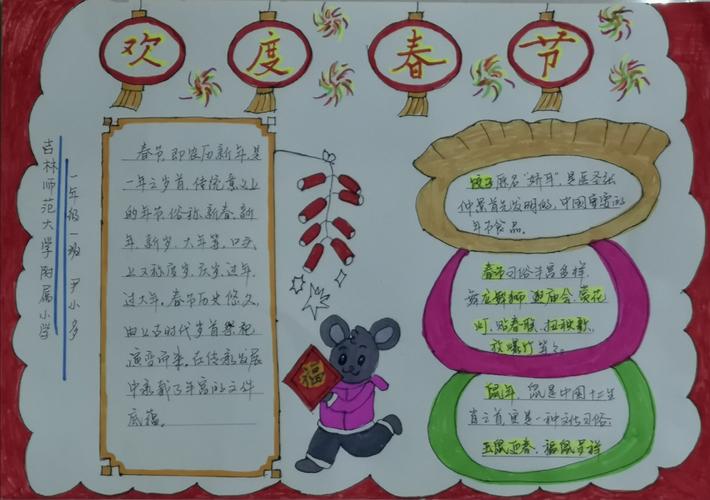 欢度春节
吉林师范大学附属小学
一年级一班 尹小多
春节,即农历新年,是
一年之岁首、传统意义上
的年节。俗称、新春、新
年、新岁、大年等,口头
上又称度岁、庆岁、过年、
过大年。春节历史悠久,
由上古时代岁首祭祀
演变而来。在传承发展
中承载了丰富的文件
底蕴。
福
饺子原名"娇耳",是医圣张
仲景首先发明的,中国重要的
年节食品。
春节习俗丰富多样,
舞龙舞狮 逛庙会、赏花
灯、贴春联、扭秧歌、
放爆竹等。
鼠年,鼠是中国十二生
肖之首,更是一种文化习俗:
玉鼠迎春、福鼠呈祥